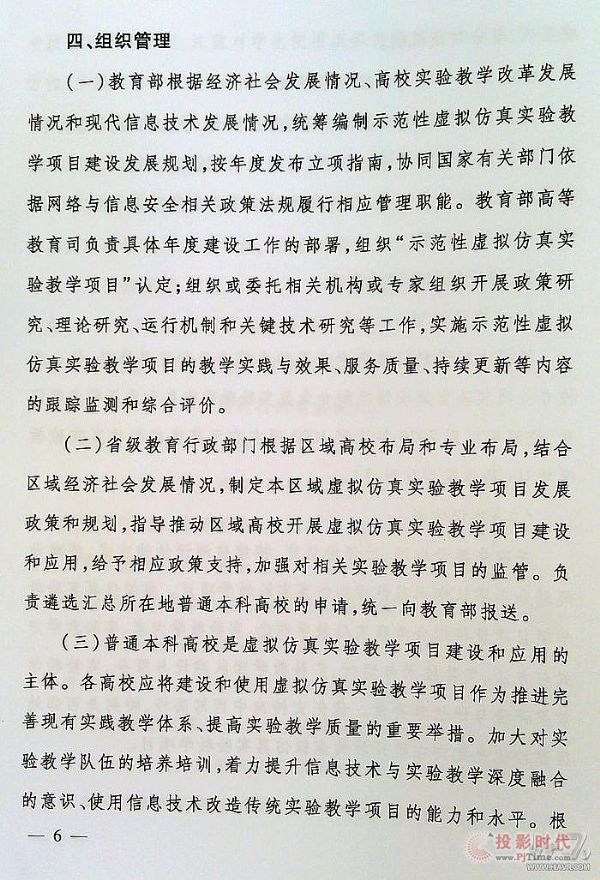 四、组织管理
(一)教育部根据经济社会发展情况、高校实验教学改革发展
情况和现代信息技术发展情况,统筹编制示范性虚拟仿真实验教
学项目建设发展规划,按年度发布立项指南,协同国家有关部门依
据网络与信息安全相关政策法规履行相应管理职能。教育部高等
教育司负责具体年度建设工作的部署,组织“示范性虚拟仿真实
验教学项目”认定;组织或委托相关机构或专家组织开展政策研
究、理论研究、运行机制和关键技术研究等工作,实施示范性虚拟
仿真实验教学项目的教学实践与效果、服务质量、持续更新等内容
的跟踪监测和综合评价。
(二)省级教育行政部门根据区域高校布局和专业布局,结合
区域经济社会发展情况,制定本区域虚拟仿真实验教学项目发展
政策和规划,指导推动区域高校开展虚拟仿真实验教学项目建设
和应用,给予相应政策支持,加强对相关实验教学项目的监管。负
责遴选汇总所在地普通本科高校的申请,统一向教育部报送。
(三)普通本科高校是虚拟仿真实验教学项目建设和应用的
主体。各高校应将建设和使用虚拟仿真实验教学项目作为推进完
善现有实践教学体系、提高实验教学质量的重要举措。加大对实
验教学队伍的培养培训,着力提升信息技术与实验教学深度融合
的意识、使用信息技术改造传统实验教学项目的能力和水平。根
— 6 —
投影时代
www.PjTime.com
WWW.HAV8.COM